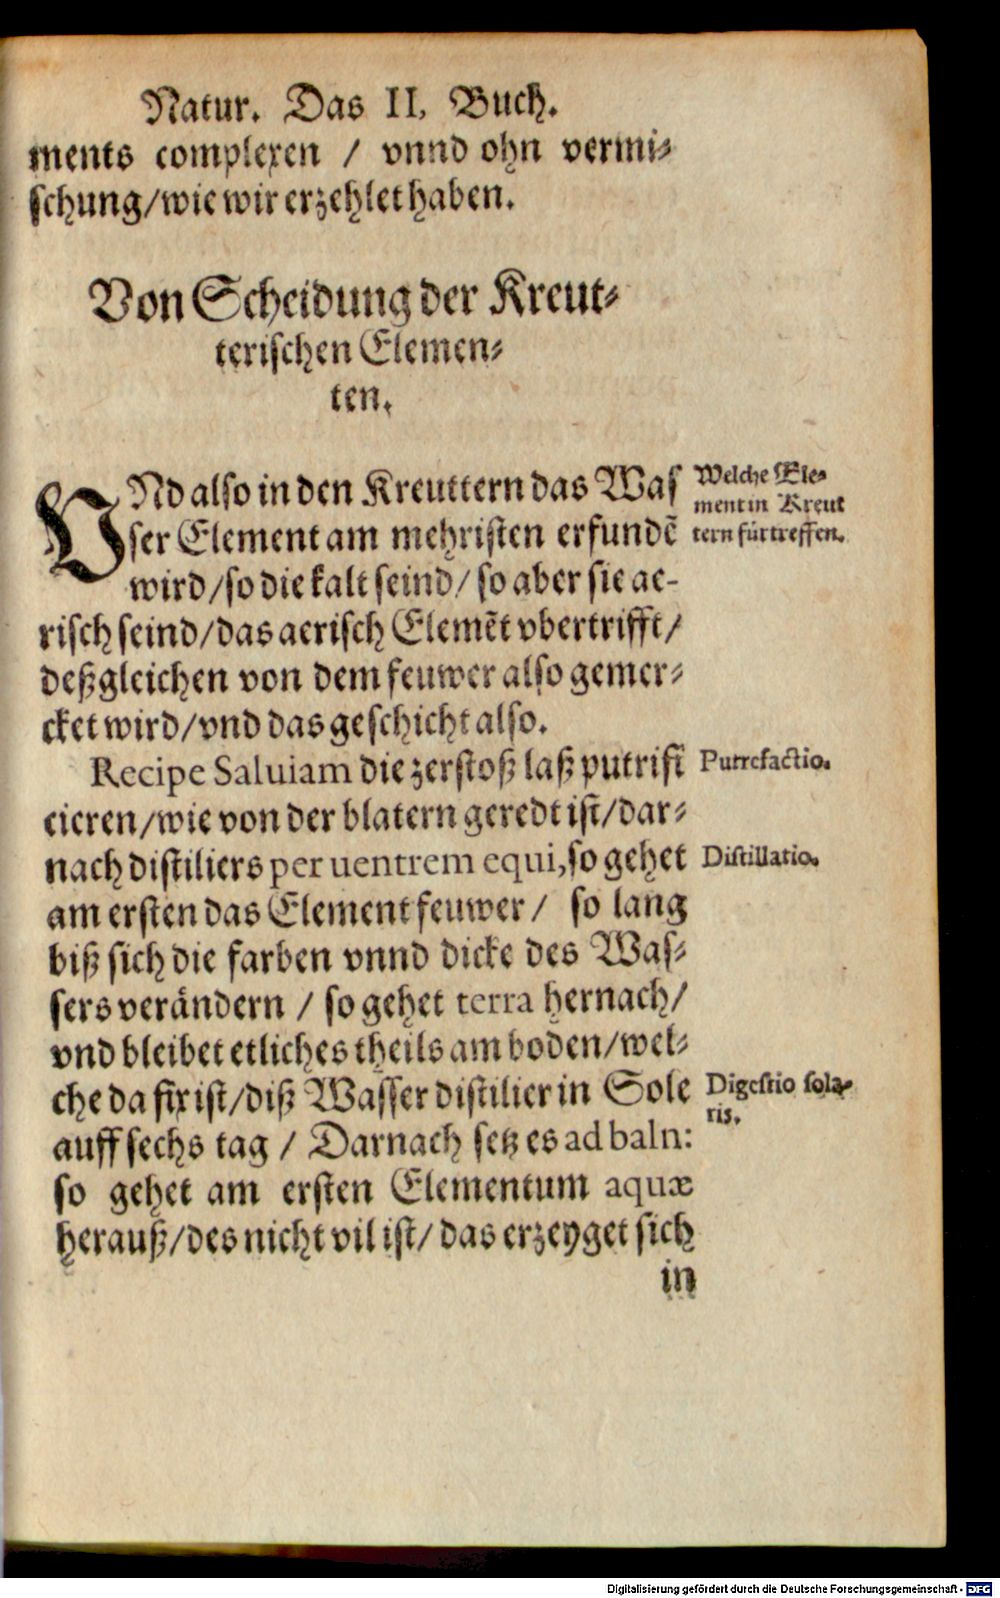 Natur. Das II. Buch.
ments complexen / vnnd ohn vermi-
schung/wie wir erzehlet haben.
Von Scheidung der Kreut-
terischen Elemen-
ten.
VNd also in den Kreuttern das Was
ser Element am mehristen erfundē
wird/so die kalt seind/ so aber sie ae-
risch seind/das aerisch Elemēt vbertrifft/
deßgleichen von dem feuwer also gemer-
cket wird/vnd das geschicht also.
Welche Ele-
ment in Kreut
tern fürtreffen.
Recipe Saluiam die zerstoß laß putrifi
cieren/wie von der blatern geredt ist/dar-
nach distiliers per uentrem equi,so gehet
am ersten das Element feuwer/ so lang
biß sich die farben vnnd dicke des Was-
sers verändern / so gehet terra hernach/
vnd bleibet etliches theils am boden/wel-
che da fix ist/diß Wasser distilier in Sole
auff sechs tag / Darnach setz es ad baln:
so gehet am ersten Elementum aquæ
herauß/des nicht vil ist/ das erzeyget sich
in
Putrefactio.
Distillatio.
Digestio sola-
ris.
Digitalisierung gefördert durch die Deutsche Forschungsgemeinschaft - DFG